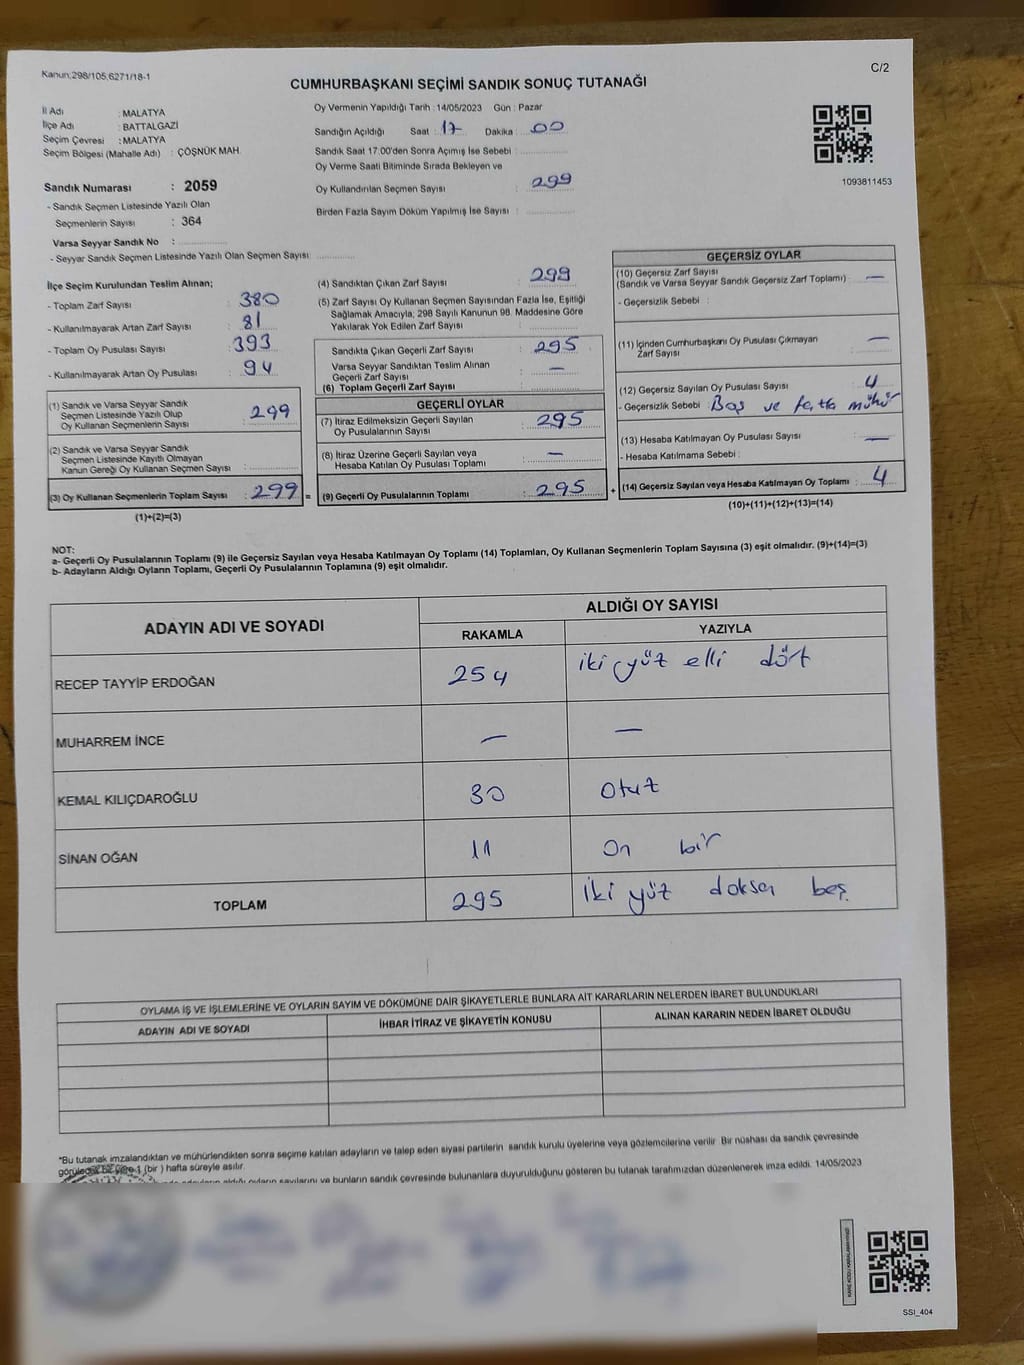 Kanun;298/105,6271/18-1
C/2
CUMHURBAŞKANI SEÇİMİ SANDIK SONUÇ TUTANAĞI
İl Adı : MALATYA
İlçe Adı : BATTALGAZİ
Seçim Çevresi : MALATYA
Seçim Bölgesi (Mahalle Adı) : ÇÖŞNÜK MAH.
Oy Vermenin Yapıldığı Tarih : 14/05/2023 Gün : Pazar
Sandığın Açıldığı Saat : 17 Dakika : 00
Sandık Saat 17:00'den Sonra Açımış İse Sebebi :
Oy Verme Saati Bitiminde Sırada Bekleyen ve
Oy Kullandırılan Seçmen Sayısı : 299
Birden Fazla Sayım Döküm Yapılmış İse Sayısı :
1093811453
Sandık Numarası : 2059
- Sandık Seçmen Listesinde Yazılı Olan
Seçmenlerin Sayısı : 364
Varsa Seyyar Sandık No :
- Seyyar Sandık Seçmen Listesinde Yazılı Olan Seçmen Sayısı :
İlçe Seçim Kurulundan Teslim Alınan;
- Toplam Zarf Sayısı : 380
- Kullanılmayarak Artan Zarf Sayısı : 81
- Toplam Oy Pusulası Sayısı : 393
- Kullanılmayarak Artan Oy Pusulası : 94
(1) Sandık ve Varsa Seyyar Sandık
Seçmen Listesinde Yazılı Olup
Oy Kullanan Seçmenlerin Sayısı : 299
(2) Sandık ve Varsa Seyyar Sandık
Seçmen Listesinde Kayıtlı Olmayan
Kanun Gereği Oy Kullanan Seçmen Sayısı :
(3) Oy Kullanan Seçmenlerin Toplam Sayısı : 299 =
(1)+(2)=(3)
(4) Sandıktan Çıkan Zarf Sayısı : 299
(5) Zarf Sayısı Oy Kullanan Seçmen Sayısından Fazla İse, Eşitliği
Sağlamak Amacıyla; 298 Sayılı Kanunun 98. Maddesine Göre
Yakılarak Yok Edilen Zarf Sayısı :
Sandıkta Çıkan Geçerli Zarf Sayısı : 295
Varsa Seyyar Sandıktan Teslim Alınan
Geçerli Zarf Sayısı : —
(6) Toplam Geçerli Zarf Sayısı :
GEÇERLİ OYLAR
(7) İtiraz Edilmeksizin Geçerli Sayılan
Oy Pusulalarının Sayısı : 295
(8) İtiraz Üzerine Geçerli Sayılan veya
Hesaba Katılan Oy Pusulası Toplamı : —
(9) Geçerli Oy Pusulalarının Toplamı : 295 +
GEÇERSİZ OYLAR
(10) Geçersiz Zarf Sayısı
(Sandık ve Varsa Seyyar Sandık Geçersiz Zarf Toplamı) : —
- Geçersizlik Sebebi :
(11) İçinden Cumhurbaşkanı Oy Pusulası Çıkmayan
Zarf Sayısı : —
(12) Geçersiz Sayılan Oy Pusulası Sayısı : 4
- Geçersizlik Sebebi : Boş ve fazla mühür
(13) Hesaba Katılmayan Oy Pusulası Sayısı : —
- Hesaba Katılmama Sebebi :
(14) Geçersiz Sayılan veya Hesaba Katılmayan Oy Toplamı : 4
(10)+(11)+(12)+(13)=(14)
NOT:
a- Geçerli Oy Pusulalarının Toplamı (9) ile Geçersiz Sayılan veya Hesaba Katılmayan Oy Toplamı (14) Toplamları, Oy Kullanan Seçmenlerin Toplam Sayısına (3) eşit olmalıdır. (9)+(14)=(3)
b- Adayların Aldığı Oyların Toplamı, Geçerli Oy Pusulalarının Toplamına (9) eşit olmalıdır.
ADAYIN ADI VE SOYADI
ALDIĞI OY SAYISI
RAKAMLA YAZIYLA
RECEP TAYYİP ERDOĞAN 254 iki yüz elli dört
MUHARREM İNCE — —
KEMAL KILIÇDAROĞLU 30 Otuz
SİNAN OĞAN 11 On bir
TOPLAM 295 İki yüz doksan beş
OYLAMA İŞ VE İŞLEMLERİNE VE OYLARIN SAYIM VE DÖKÜMÜNE DAİR ŞİKAYETLERLE BUNLARA AİT KARARLARIN NELERDEN İBARET BULUNDUKLARI
ADAYIN ADI VE SOYADI İHBAR İTİRAZ VE ŞİKAYETİN KONUSU ALINAN KARARIN NEDEN İBARET OLDUĞU
*Bu tutanak imzalandıktan ve mühürlendikten sonra seçime katılan adayların ve talep eden siyasi partilerin sandık kurulu üyelerine veya gözlemcilerine verilir. Bir nüshası da sandık çevresinde
1 (bir ) hafta süreyle asılır.
adayların aldığı oyların sayılarını ve bunların sandık çevresinde bulunanlara duyurulduğunu gösteren bu tutanak tarafımızdan düzenlenerek imza edildi. 14/05/2023
SSI_404